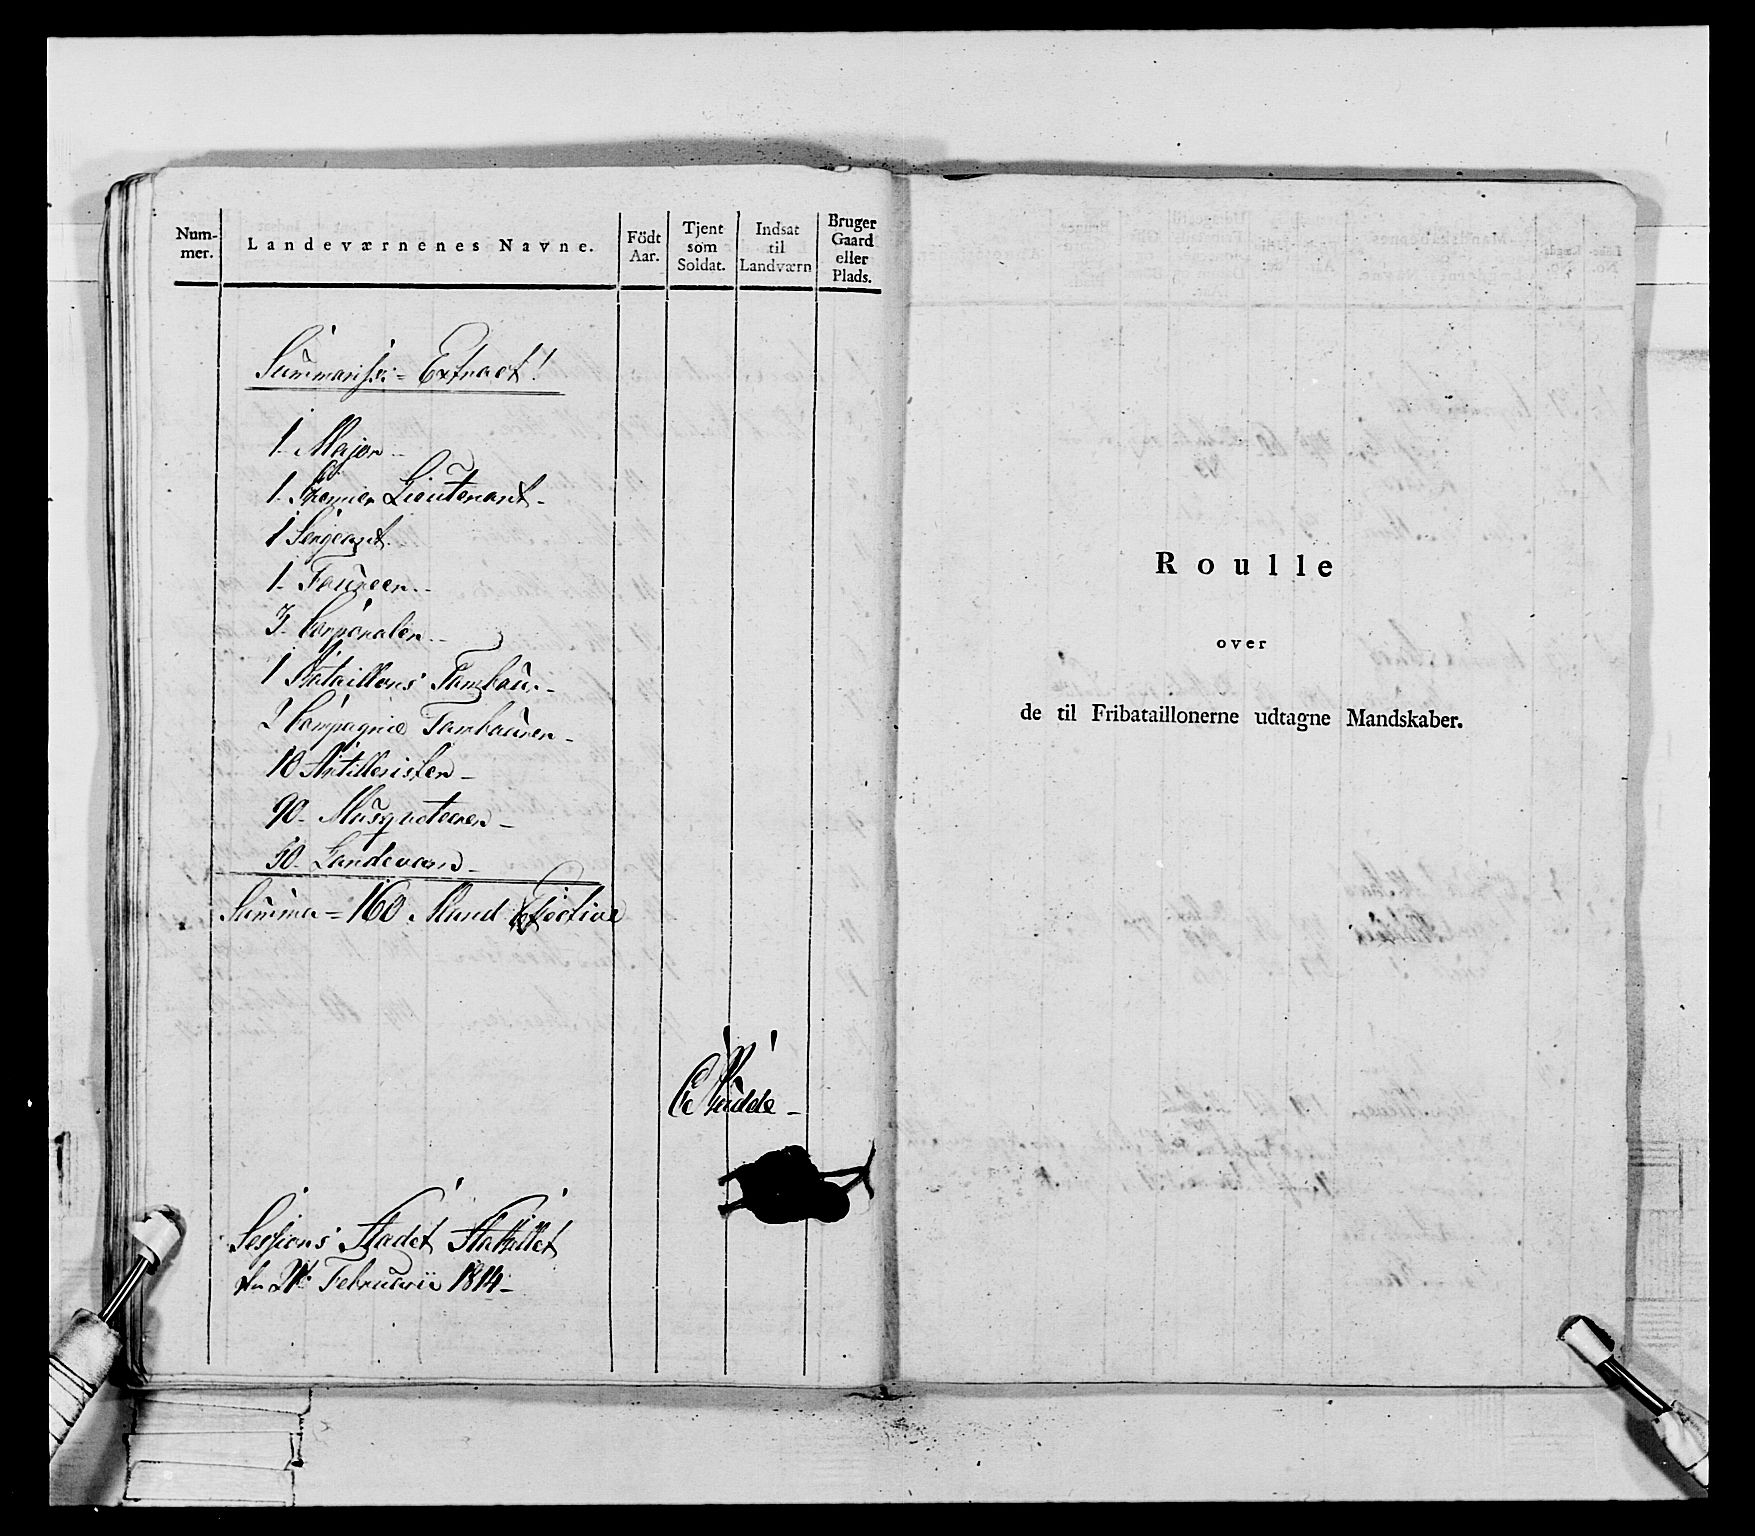 Num-
mer.
Landeværnenes Navne.
Födt
Aar.
Tjent
som
Soldat.
Indsat
til
Landværn
Bruger
Gaard
eller
Plads.
Extract!
1. Major
1. Premier Lieutenant
1 Sergeant
1. Foureer
3. Corporaler
1 Batallions Tambour
2 Compagnie Tambourer
10 Artillerister
90. Musqueteerer
50. Landeværn
Summa = 160 Mand Efective
Budde
Sessions Stadet
Februarii 1814
Roulle
over
de til Fribataillonerne udtagne Mandskaber.